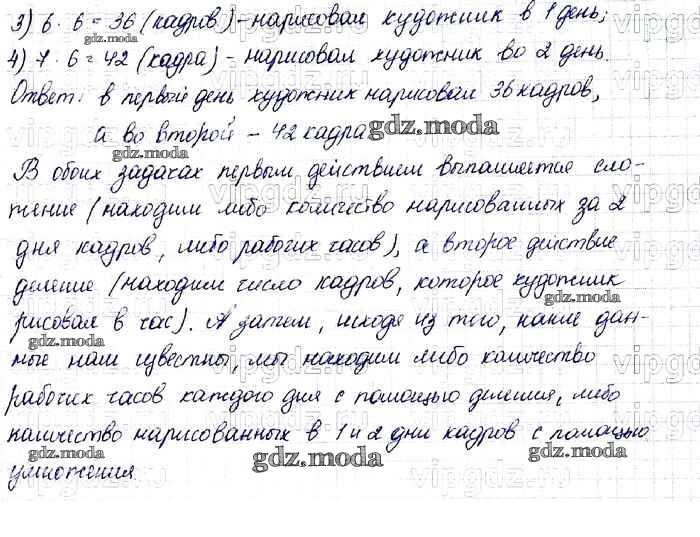 3) 6 · 6 = 36 (кадров) - нарисовал художник в 1 день;
4) 7 · 6 = 42 (кадра) - нарисовал художник во 2 день.
Ответ: в первый день художник нарисовал 36 кадров,
а во второй - 42 кадра
В обоих задачах первым действием выполняется сло-
жение (находим либо количество нарисованных за 2
дня кадров, либо рабочих часов), а второе действие
деление (находим число кадров, которое художник
рисовал в час). А затем, исходя из того, какие дан-
ные нам известны, мы находим либо количество
рабочих часов каждого дня с помощью деления, либо
количество нарисованных в 1 и 2 дни кадров с помощью
умножения
gdz.moda
vipgdz.ru